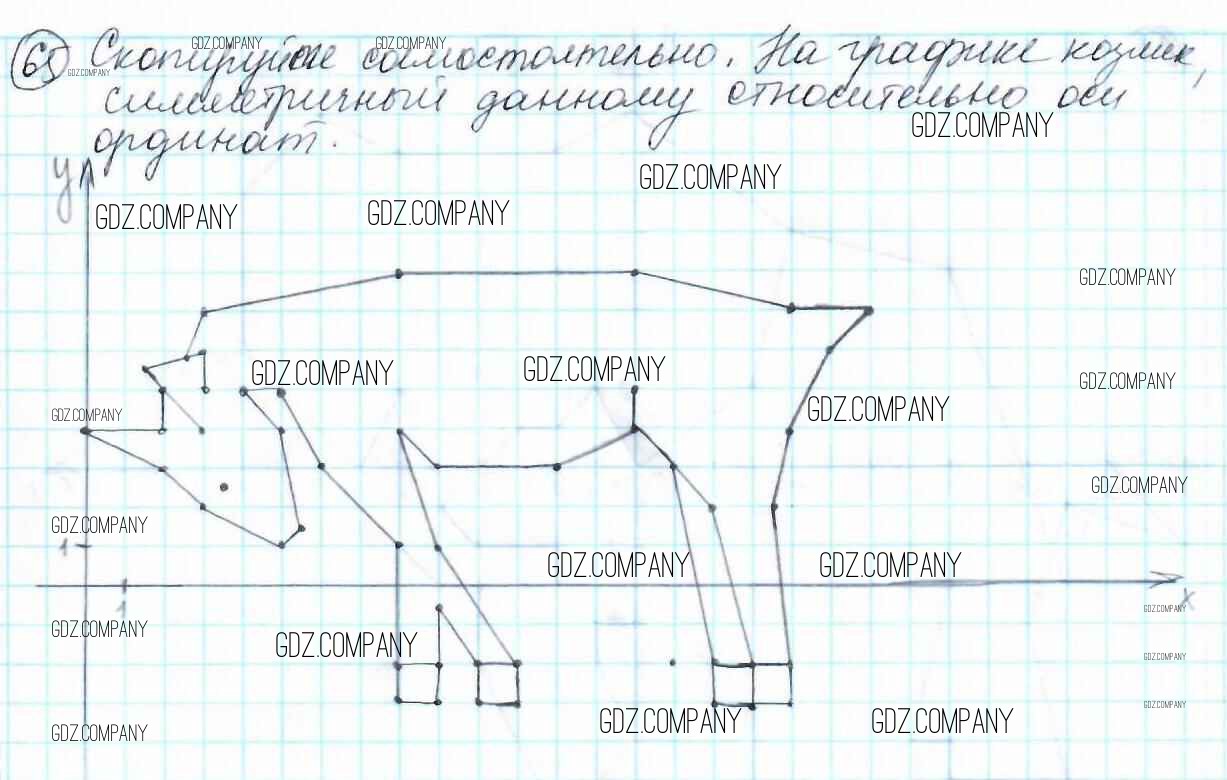 65 Скопируйте самостоятельно. На графике козлик,
симметричный данному относительно оси
ординат.
GDZ.COMPANY
GDZ.COMPANY
GDZ.COMPANY
GDZ.COMPANY
GDZ.COMPANY
y
GDZ.COMPANY
GDZ.COMPANY
GDZ.COMPANY
GDZ.COMPANY
GDZ.COMPANY
GDZ.COMPANY
GDZ.COMPANY
GDZ.COMPANY
GDZ.COMPANY
GDZ.COMPANY
1
GDZ.COMPANY
GDZ.COMPANY
1
x
GDZ.COMPANY
GDZ.COMPANY
GDZ.COMPANY
GDZ.COMPANY
GDZ.COMPANY
GDZ.COMPANY
GDZ.COMPANY
GDZ.COMPANY
GDZ.COMPANY